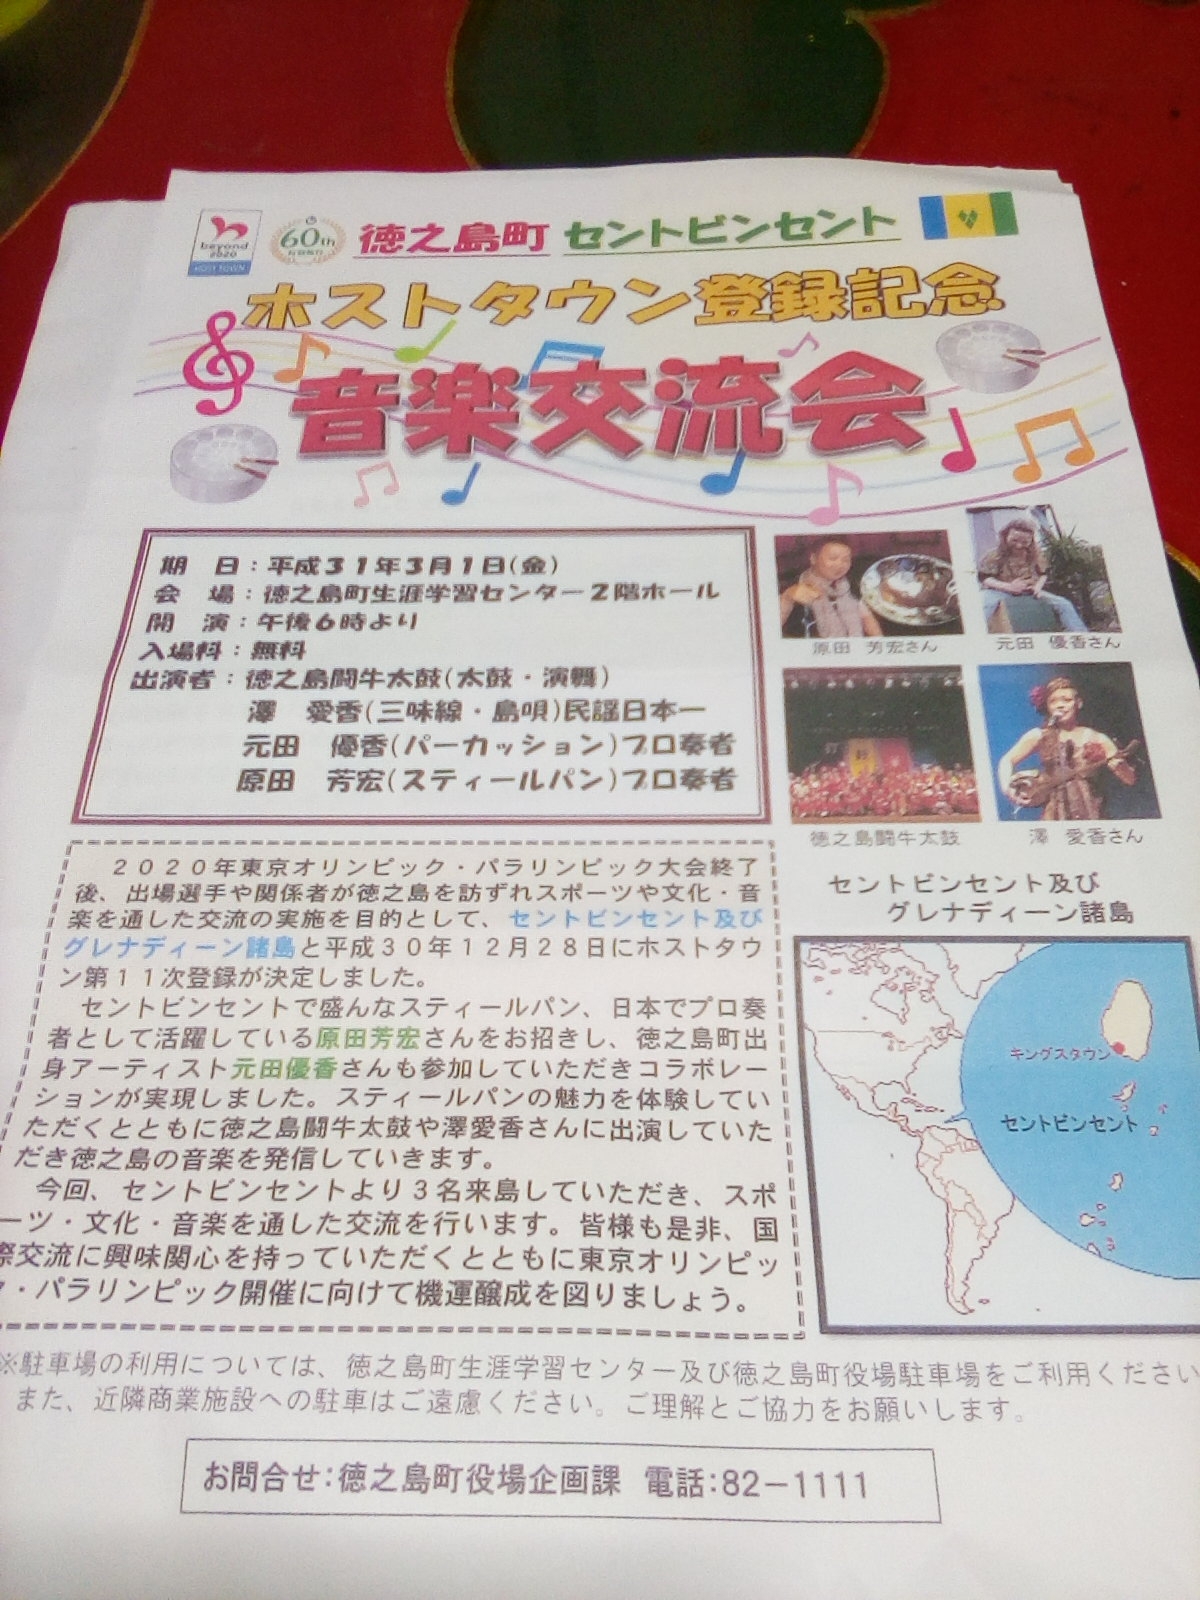 beyond
2020
HOST TOWN
60th
徳之島町 セントビンセント
ホストタウン登録記念
音楽交流会
期 日:平成31年3月1日(金)
会 場:徳之島町生涯学習センター2階ホール
開 演:午後6時より
入場料:無料
出演者:徳之島闘牛太鼓(太鼓・演舞)
澤 愛香(三味線・島唄)民謡日本一
元田 優香(パーカッション)プロ奏者
原田 芳宏(スティールパン)プロ奏者
原田 芳宏さん
元田 優香さん
徳之島闘牛太鼓
澤 愛香さん
2020年東京オリンピック・パラリンピック大会終了
後、出場選手や関係者が徳之島を訪ずれスポーツや文化・音
楽を通した交流の実施を目的として、セントビンセント及び
グレナディーン諸島と平成30年12月28日にホストタウ
ン第11次登録が決定しました。
セントビンセントで盛んなスティールパン、日本でプロ奏
者として活躍している原田芳宏さんをお招きし、徳之島町出
身アーティスト元田優香さんも参加していただきコラボレー
ションが実現しました。スティールパンの魅力を体験してい
ただくとともに徳之島闘牛太鼓や澤愛香さんに出演していた
だき徳之島の音楽を発信していきます。
今回、セントビンセントより3名来島していただき、スポ
ーツ・文化・音楽を通した交流を行います。皆様も是非、国
際交流に興味関心を持っていただくとともに東京オリンピッ
ク・パラリンピック開催に向けて機運醸成を図りましょう。
セントビンセント及び
グレナディーン諸島
キングスタウン
セントビンセント
※駐車場の利用については、徳之島町生涯学習センター及び徳之島町役場駐車場をご利用ください
また、近隣商業施設への駐車はご遠慮ください。ご理解とご協力をお願いします。
お問合せ:徳之島町役場企画課 電話:82-1111